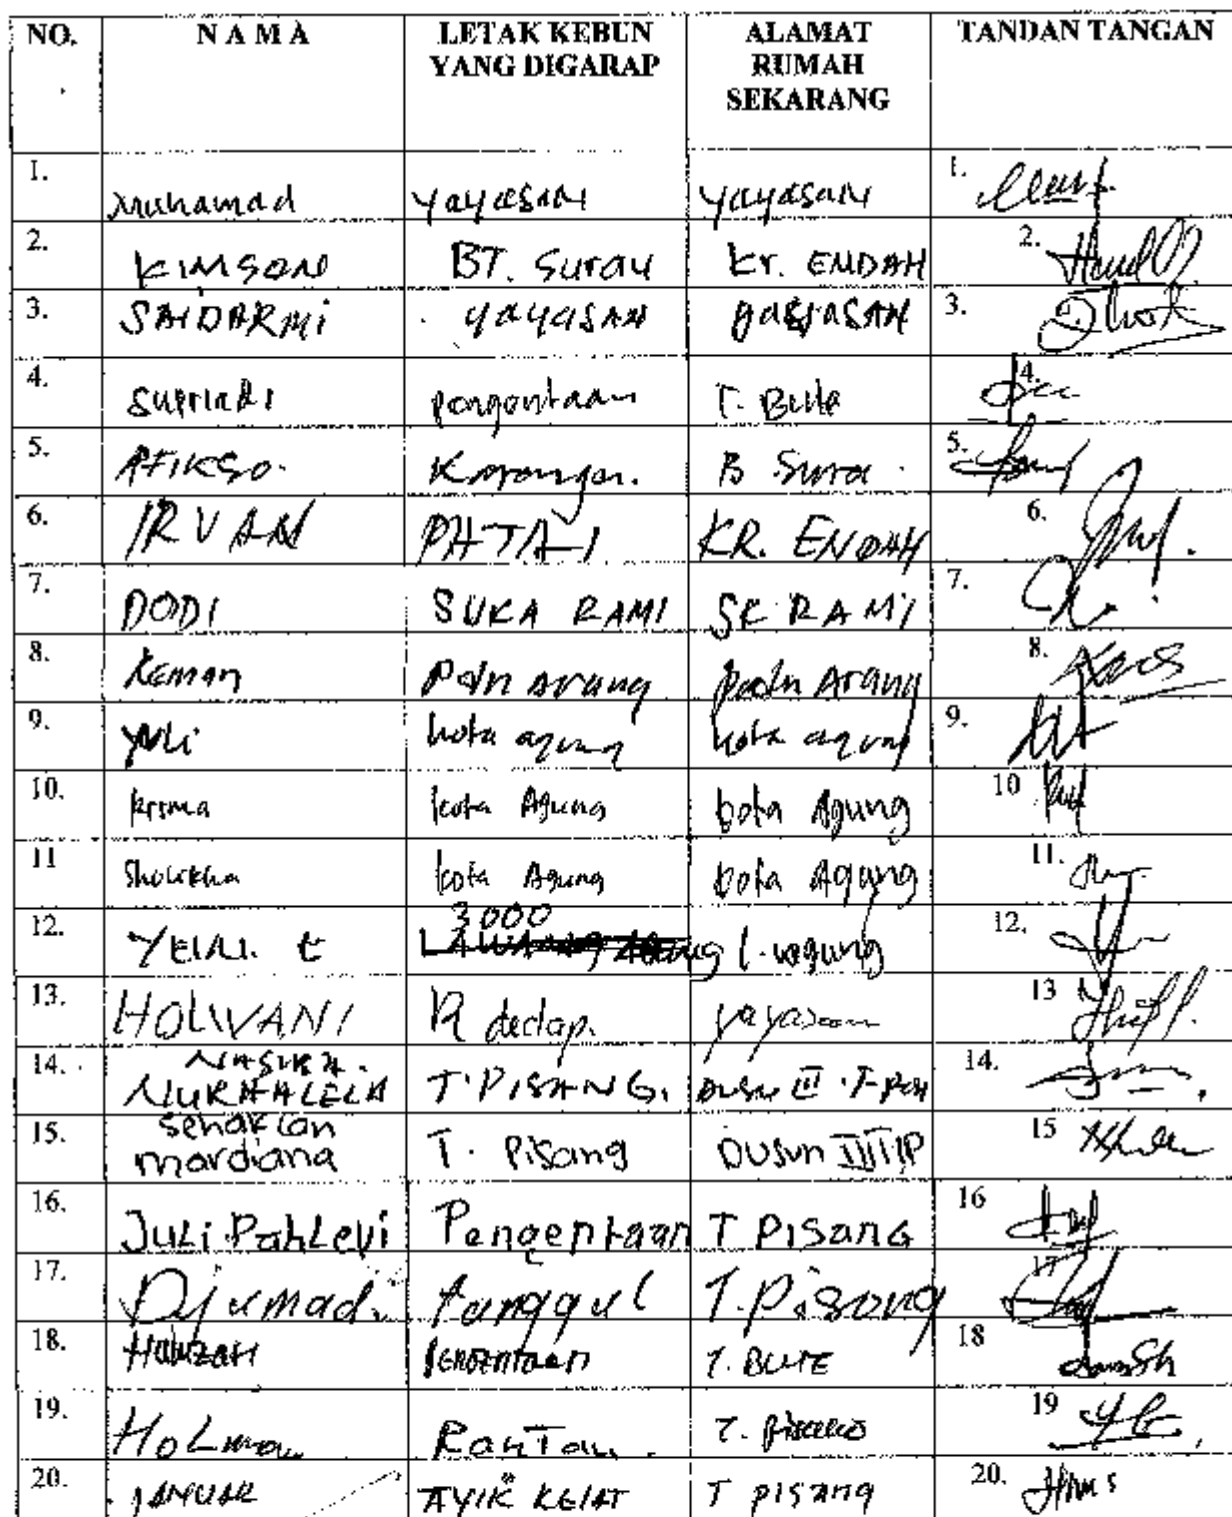 NO. NAMA LETAK KEBUN ALAMAT TANDAN TANGAN
YANG DIGARAP RUMAH
SEKARANG
1. Muhamad yayasan yayasan 1.
2. KIMSON BT. Surau Kr. ENDAH 2.
3. SAIDARMi yayasan yayasan 3.
4. SupriaDi pengentaan T. Bute 4.
5. AFIKSO. Karangan. B Sura 5.
6. IRVAN PATAI KR. ENDAH 6.
7. DODI SUKA RAMI SK RAMI 7.
8. Keman Padn Arang Padn Arang 8.
9. yuli kota agung kota agung 9.
10. krisma kota Agung kota Agung 10
11 Sholikha kota Agung kota Agung 11.
3000
12. YELNI. E L. Agung 12.
13. HOLIVANI R dedap. yayasan 13
14. NURHALELA T. PISANG. 14.
15. mardiana T. Pisang Dusun III TIP 15
16. Juli Pahlevi Pengentaan T PISang 16
17. Djumadi tanggul T. Pisang 17
18. Hamzah PENGENTAAN T. BUTE 18
19. Holman RanTau. 19
20. JANUAR AYIK KELAT T pisang 20.